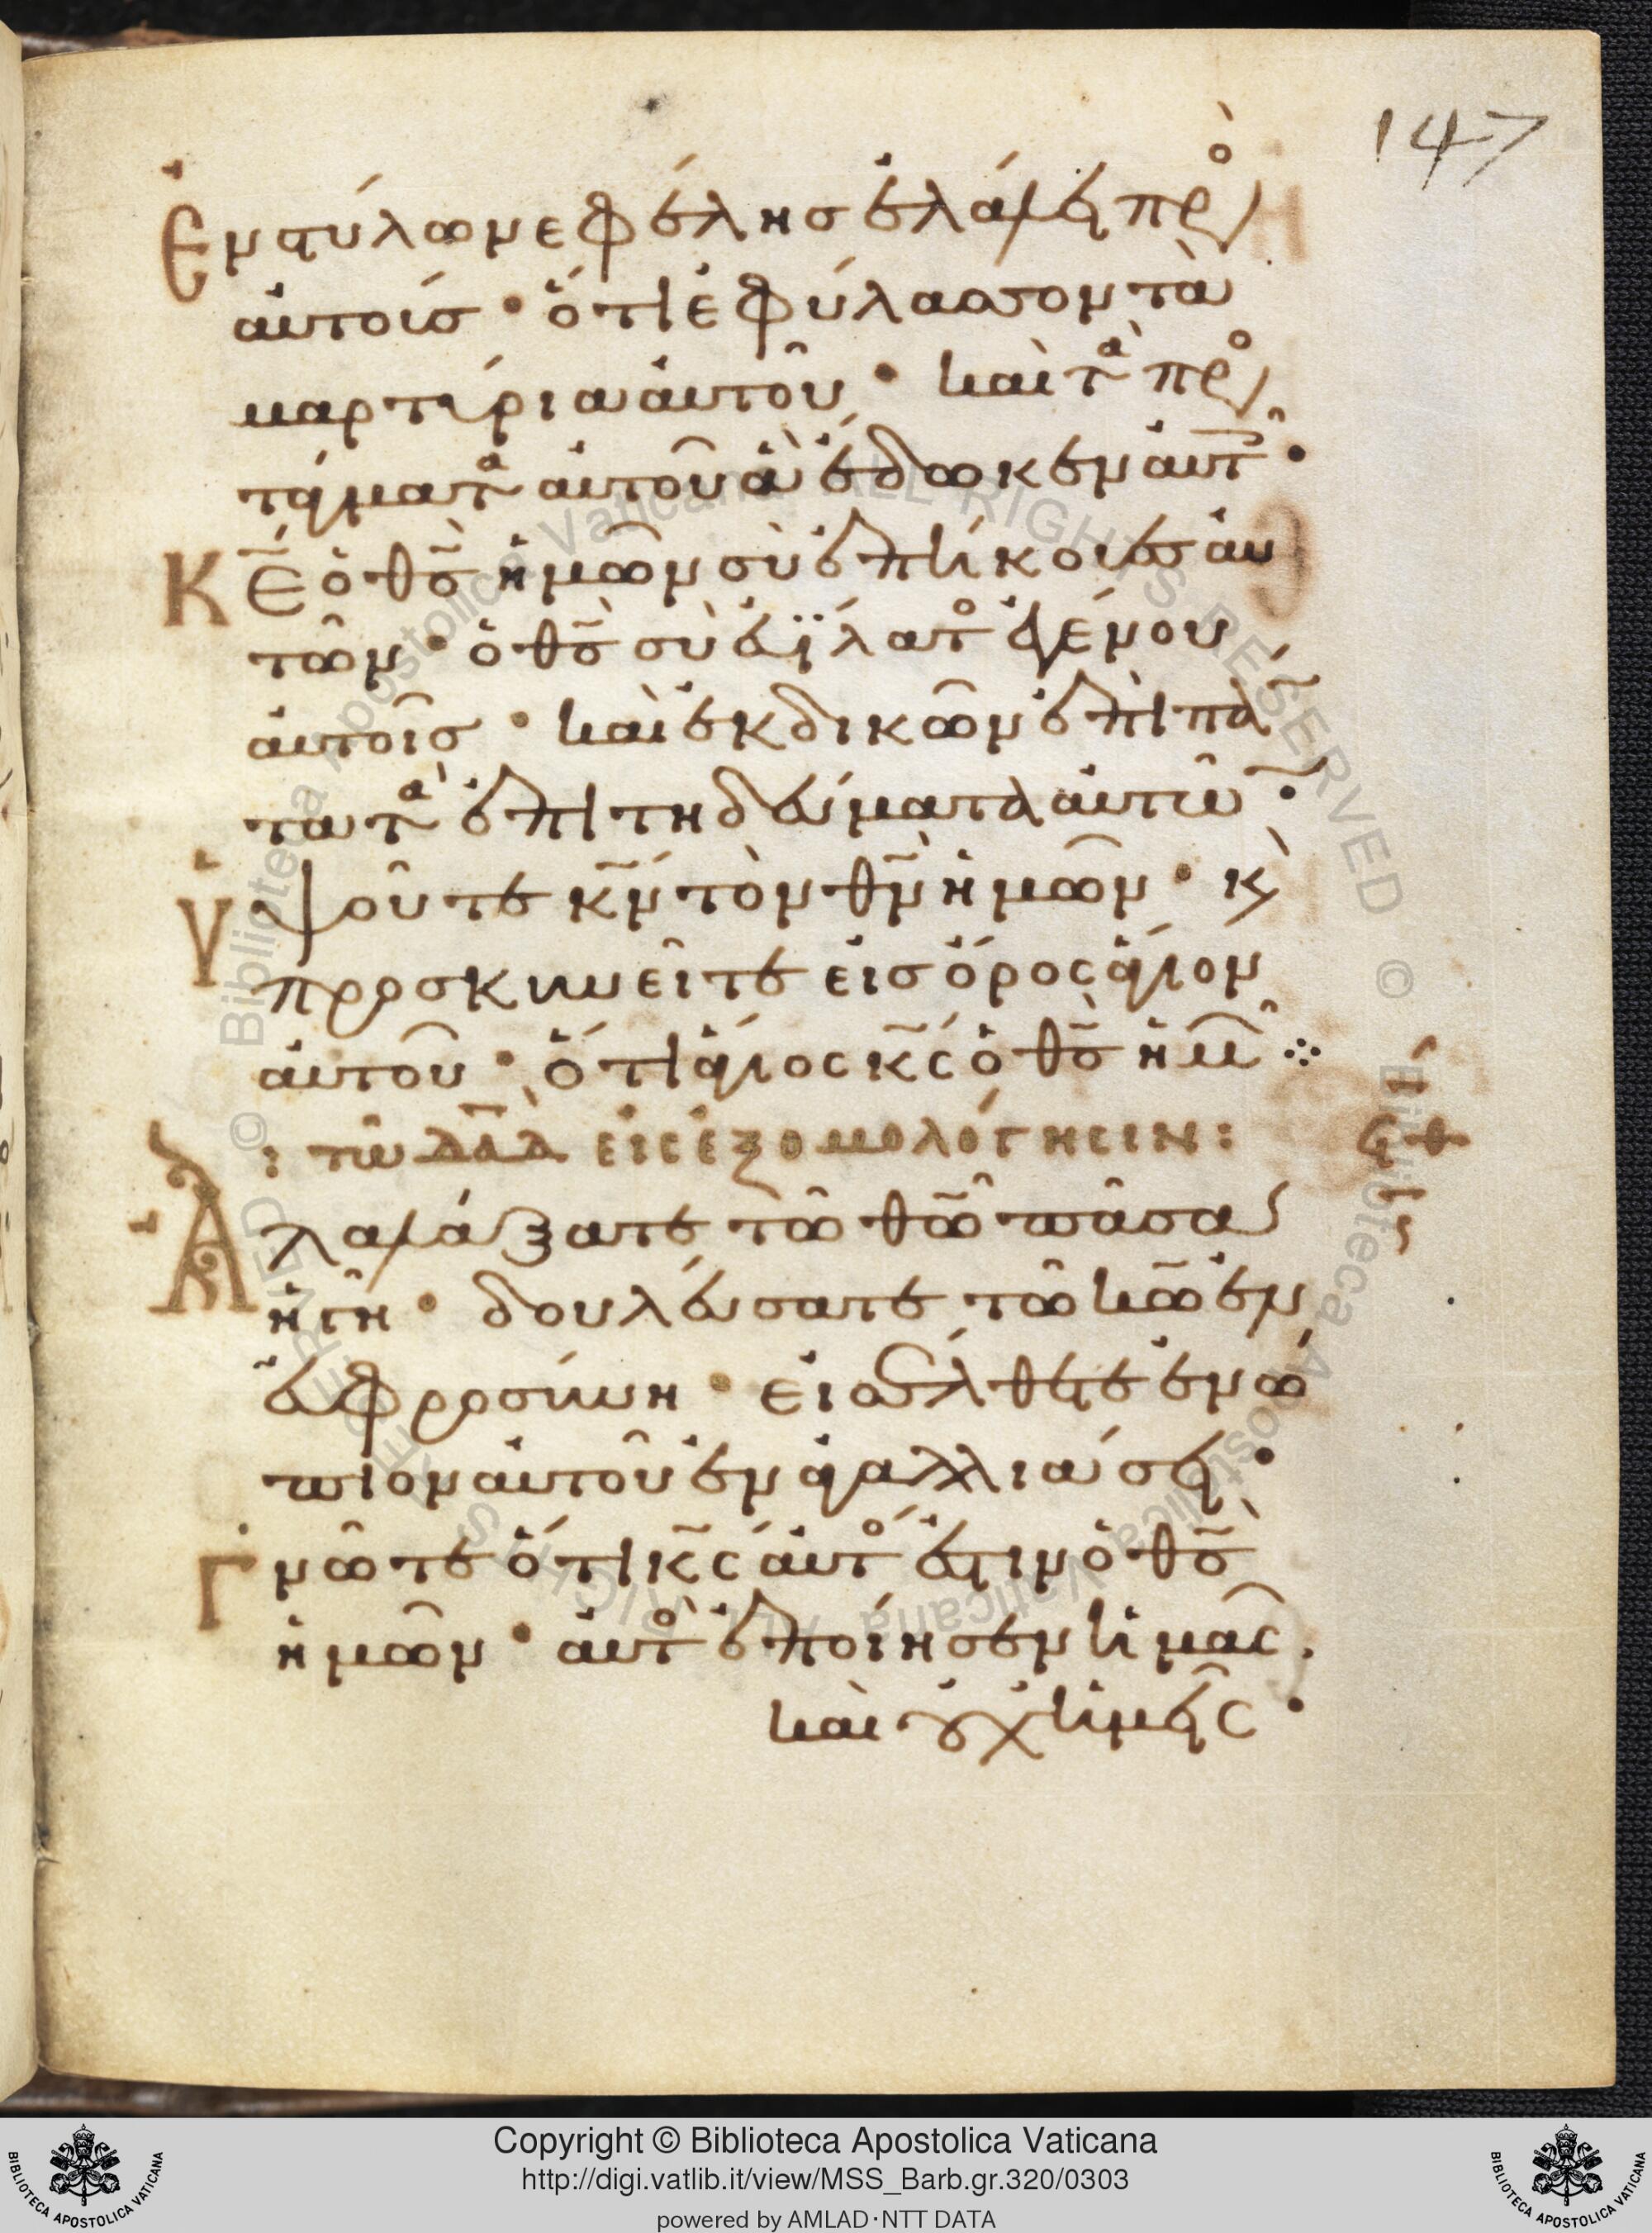 147
Ἐν στύλω νεφέλης ἐλάλει πρὸ(ς)
αὐτούς · ὅτι ἐφύλασσον τὰ
μαρτύρια αὐτοῦ · καὶ τὰ προσ
τάγματα αὐτοῦ ἃ ἔδωκεν αὐτ(οῖς) ·
Κ̅Ε̅ ὁ θ̅ς̅ ἡμῶν σὺ ἐπήκουες αὐ
τῶν · ὁ θ̅ς̅ σὺ εὐΐλατος ἐγένου
αὐτοῖς · καὶ ἐκδικῶν ἐπὶ πάν
τα τὰ ἐπιτηδεύματα αὐτῶ(ν) ·
Ὑψοῦτε κ̅ν̅ τὸν θ̅ν̅ ἡμῶν · κ(αὶ)
προσκυνεῖτε εἰς ὄρος ἅγιον
αὐτοῦ · ὅτι ἅγιος κ̅ς̅ ὁ θ̅ς̅ ἡμ(ῶν) ⁘
: τῶ δ̅α̅δ̅ εἰς ἐξομολόγησιν :
Ἀλαλάξατε τῶ θ̅ῶ̅ πᾶσα
ἡ γῆ · δουλεύσατε τῶ κ̅ῶ̅ ἐν
εὐφροσύνη · εἰσέλθετε ἐνώ
πιον αὐτοῦ ἐν ἀγαλλιάσει ·
Γνῶτε ὅτι κ̅ς̅ αὐτός ἐστιν ὁ θ̅ς̅
ἡμῶν · αὐτὸς ἐποίησεν ἡμᾶς.
καὶ οὐχ ἡμεῖς ·
Copyright © Biblioteca Apostolica Vaticana
http://digi.vatlib.it/view/MSS_Barb.gr.320/0303
powered by AMLAD·NTT DATA